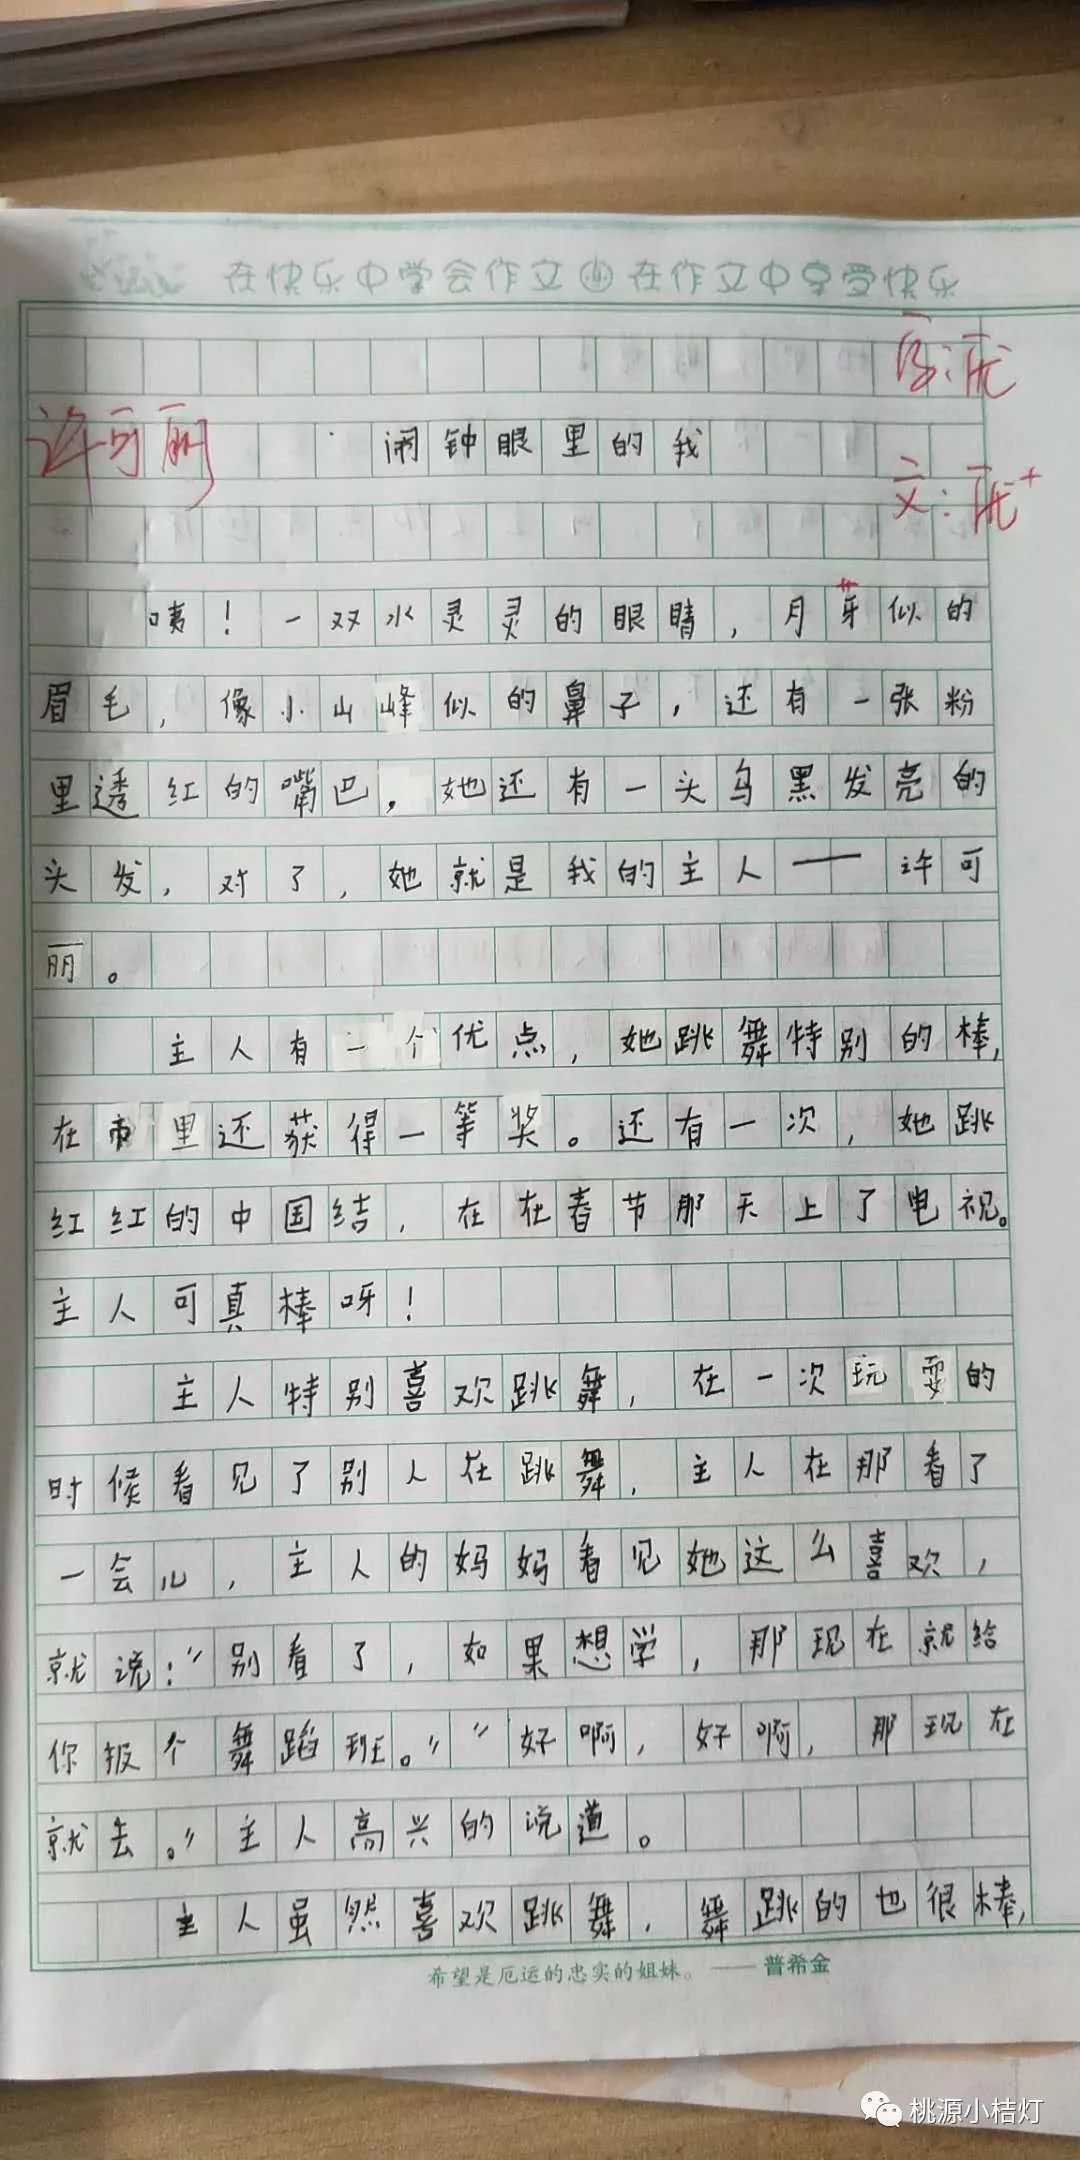 在快乐中学会作文 在作文中享受快乐
字:优
许可丽 闹钟眼里的我
文:优+
咦!一双水灵灵的眼睛,月芽似的
眉毛,像小山峰似的鼻子,还有一张粉
里透红的嘴巴,她还有一头乌黑发亮的
头发,对了,她就是我的主人——许可
丽。
主人有一个优点,她跳舞特别的棒,
在市里还获得一等奖。还有一次,她跳
红红的中国结,在在春节那天上了电视。
主人可真棒呀!
主人特别喜欢跳舞,在一次玩耍的
时候看见了别人在跳舞,主人在那看了
一会儿,主人的妈妈看见她这么喜欢,
就说:"别看了,如果想学,那现在就给
你报个舞蹈班。""好啊,好啊,那现在
就去。"主人高兴的说道。
主人虽然喜欢跳舞,舞跳的也很棒,
希望是厄运的忠实的姐妹。——普希金
桃源小桔灯